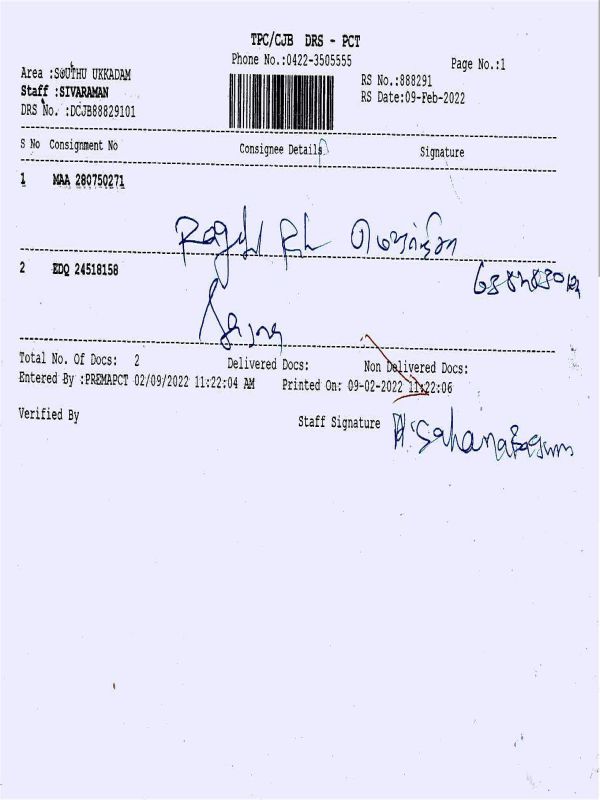 TPC/CJB DRS - PCT
Phone No.:0422-3505555
Page No.:1
Area :SOUTHU UKKADAM
RS No.:888291
Staff :SIVARAMAN
RS Date:09-Feb-2022
DRS No. :DCJB88829101
S No Consignment No Consignee Details Signature
1 MAA 280750271
2 EDQ 24518158
Total No. Of Docs: 2 Delivered Docs: Non Delivered Docs:
Entered By :PREMAPCT 02/09/2022 11:22:04 AM Printed On: 09-02-2022 11:22:06
Verified By Staff Signature